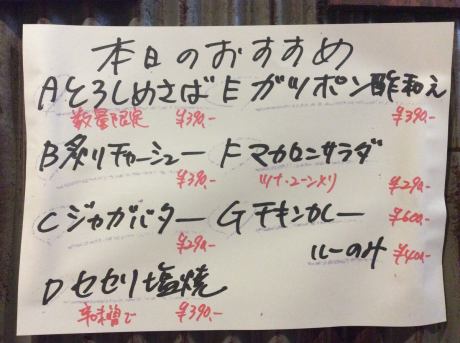 本日のおすすめ
Aとろしめさば
数量限定 ¥390.-
B炙りチャーシュー
¥390.-
Cジャガバター
¥290.-
Dセセリ塩焼
辛味噌で ¥390.-
Eガツポン酢和え
¥390.-
Fマカロニサラダ
ツナ・コーン入り ¥290.-
Gチキンカレー ¥600.-
ルーのみ ¥400.-